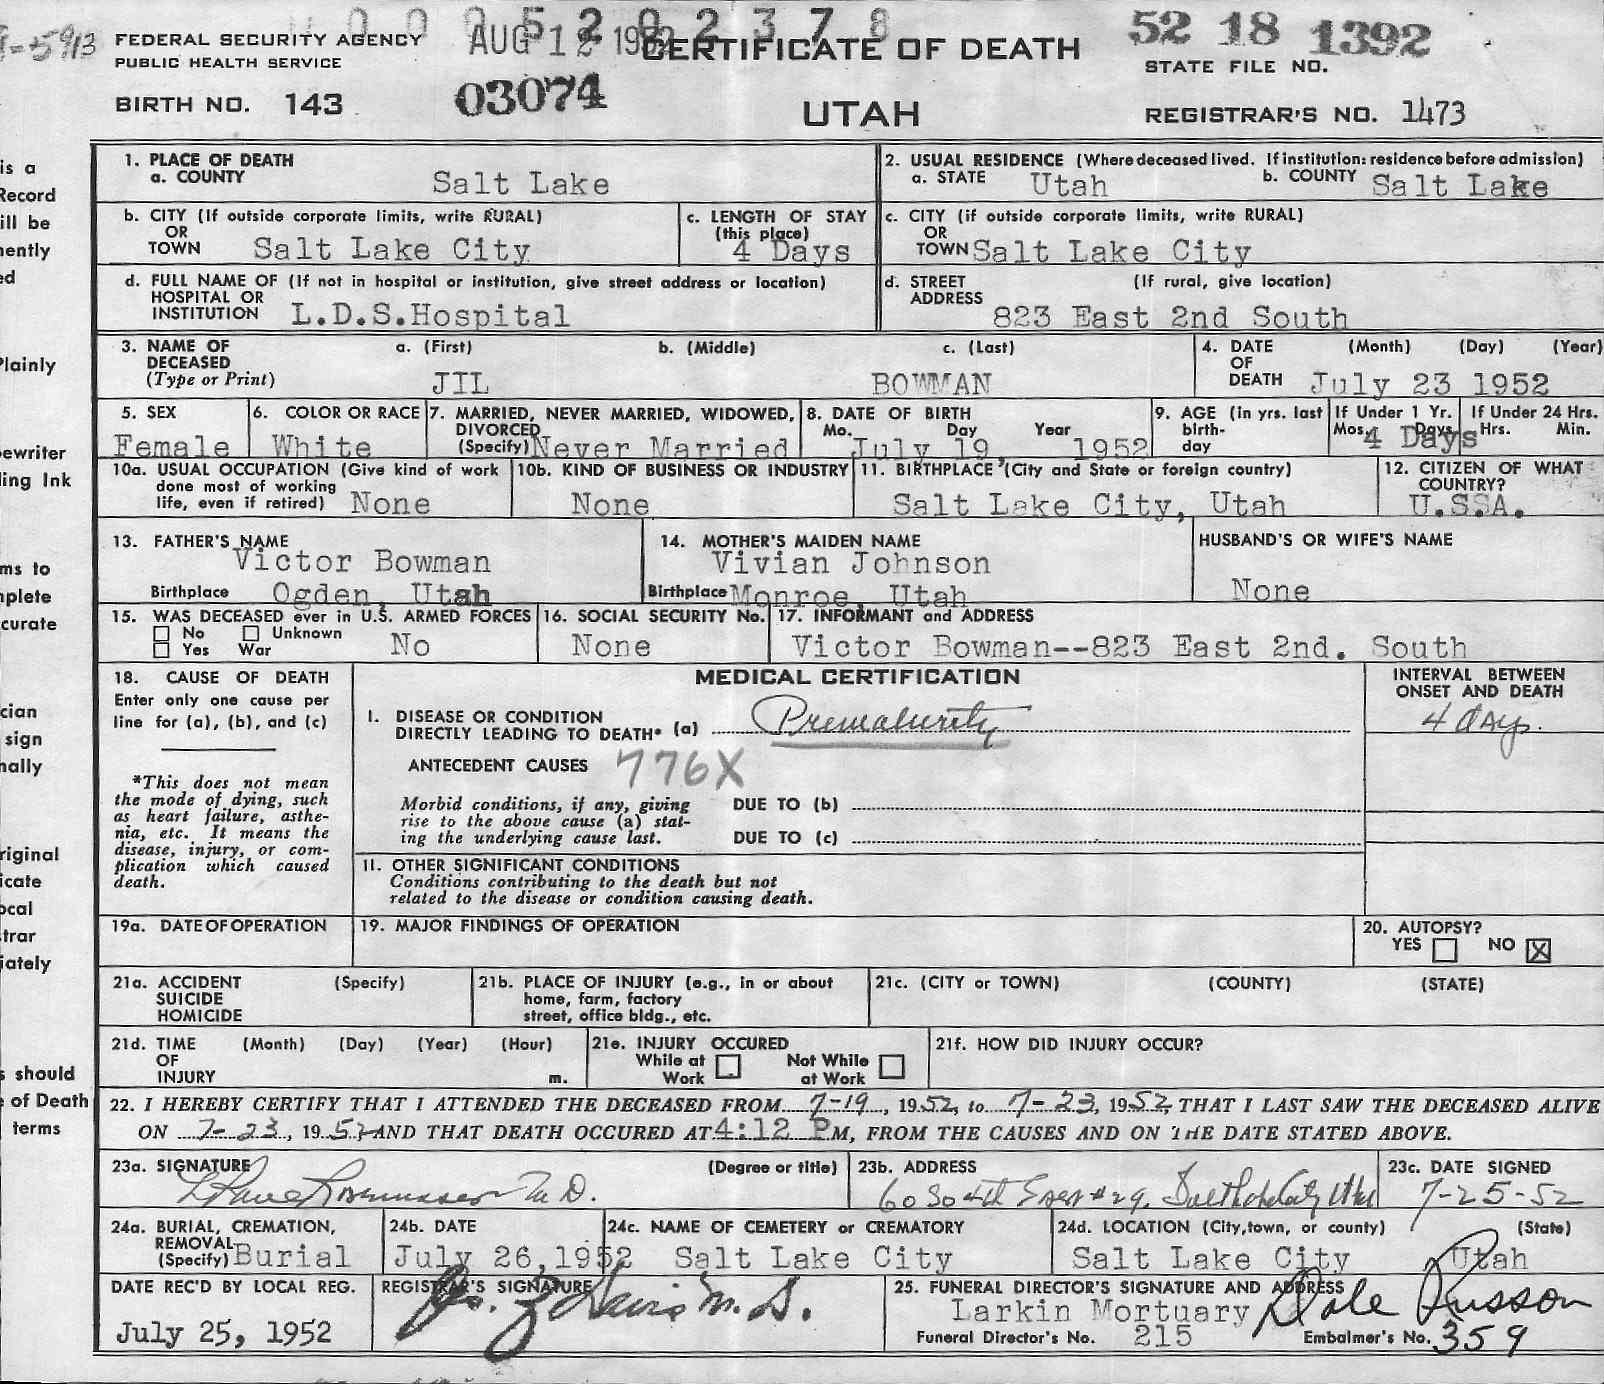 0 0 0 5 2 0 2 3 7 8
5913
FEDERAL SECURITY AGENCY
PUBLIC HEALTH SERVICE
AUG 12 1952
CERTIFICATE OF DEATH
52 18 1392
STATE FILE NO.
BIRTH NO. 143
03074
UTAH
REGISTRAR'S NO. 1473
is a
Record
ill be
nently
ed
Plainly
ewriter
ling Ink
ms to
plete
curate
cian
sign
nally
riginal
icate
ocal
trar
iately
s should
e of Death
terms
1. PLACE OF DEATH
a. COUNTY Salt Lake
2. USUAL RESIDENCE (Where deceased lived. If institution: residence before admission)
a. STATE Utah b. COUNTY Salt Lake
b. CITY (If outside corporate limits, write RURAL)
OR
TOWN Salt Lake City
c. LENGTH OF STAY
(this place)
4 Days
c. CITY (if outside corporate limits, write RURAL)
OR
TOWN Salt Lake City
d. FULL NAME OF (If not in hospital or institution, give street address or location)
HOSPITAL OR
INSTITUTION L.D.S.Hospital
d. STREET (If rural, give location)
ADDRESS
823 East 2nd South
3. NAME OF a. (First) b. (Middle) c. (Last)
DECEASED
(Type or Print) JIL BOWMAN
4. DATE (Month) (Day) (Year)
OF
DEATH July 23 1952
5. SEX
Female
6. COLOR OR RACE
White
7. MARRIED, NEVER MARRIED, WIDOWED,
DIVORCED
(Specify) Never Married
8. DATE OF BIRTH
Mo. Day Year
July 19, 1952
9. AGE (in yrs. last
birth-
day
If Under 1 Yr.
Mos. Days
4 Days
If Under 24 Hrs.
Hrs. Min.
10a. USUAL OCCUPATION (Give kind of work
done most of working
life, even if retired) None
10b. KIND OF BUSINESS OR INDUSTRY
None
11. BIRTHPLACE (City and State or foreign country)
Salt Lake City, Utah
12. CITIZEN OF WHAT
COUNTRY?
U.SSA.
13. FATHER'S NAME
Victor Bowman
Birthplace Ogden, Utah
14. MOTHER'S MAIDEN NAME
Vivian Johnson
Birthplace Monroe, Utah
HUSBAND'S OR WIFE'S NAME
None
15. WAS DECEASED ever in U.S. ARMED FORCES
No Unknown
Yes War No
16. SOCIAL SECURITY No.
None
17. INFORMANT and ADDRESS
Victor Bowman--823 East 2nd. South
18. CAUSE OF DEATH
Enter only one cause per
line for (a), (b), and (c)
*This does not mean
the mode of dying, such
as heart failure, asthe-
nia, etc. It means the
disease, injury, or com-
plication which caused
death.
MEDICAL CERTIFICATION
I. DISEASE OR CONDITION
DIRECTLY LEADING TO DEATH* (a) Prematurity
ANTECEDENT CAUSES 776X
Morbid conditions, if any, giving
rise to the above cause (a) stat-
ing the underlying cause last.
DUE TO (b)
DUE TO (c)
II. OTHER SIGNIFICANT CONDITIONS
Conditions contributing to the death but not
related to the disease or condition causing death.
INTERVAL BETWEEN
ONSET AND DEATH
4 days.
19a. DATE OF OPERATION
19. MAJOR FINDINGS OF OPERATION
20. AUTOPSY?
YES NO X
21a. ACCIDENT (Specify)
SUICIDE
HOMICIDE
21b. PLACE OF INJURY (e.g., in or about
home, farm, factory
street, office bldg., etc.
21c. (CITY or TOWN) (COUNTY) (STATE)
21d. TIME (Month) (Day) (Year) (Hour)
OF
INJURY m.
21e. INJURY OCCURED
While at Work
Not While at Work
21f. HOW DID INJURY OCCUR?
22. I HEREBY CERTIFY THAT I ATTENDED THE DECEASED FROM 7-19, 1952, to 7-23, 1952, THAT I LAST SAW THE DECEASED ALIVE
ON 7-23, 1952 AND THAT DEATH OCCURED AT 4:12 PM, FROM THE CAUSES AND ON THE DATE STATED ABOVE.
23a. SIGNATURE (Degree or title)
Rasmussen M.D.
23b. ADDRESS
60 So 4th East #29, Salt Lake City Utah
23c. DATE SIGNED
7-25-52
24a. BURIAL, CREMATION,
REMOVAL
(Specify) Burial
24b. DATE
July 26,1952
24c. NAME OF CEMETERY or CREMATORY
Salt Lake City
24d. LOCATION (City,town, or county) (State)
Salt Lake City Utah
DATE REC'D BY LOCAL REG.
July 25, 1952
REGISTRAR'S SIGNATURE
Davis M.D.
25. FUNERAL DIRECTOR'S SIGNATURE AND ADDRESS
Larkin Mortuary Dale Russon
Funeral Director's No. 215 Embalmer's No. 359